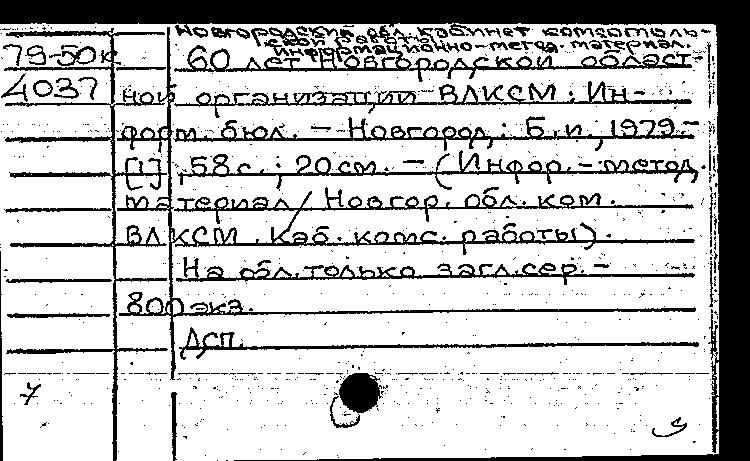 Новгородский обл. кабинет комсомоль-
ской работы
информационно-метод. материал.
79-50к 60 лет Новгородской област-
4037 ной организации ВЛКСМ : Ин-
форм. бюл. — Новгород, : Б.и., 1979.-
[1], 58 с. ; 20 см. — (Инфор.-метод.
материал / Новгор. обл. ком.
ВЛКСМ. Каб. комс. работы).
На обл. только загл. сер. -
800 экз.
Дсп.
7